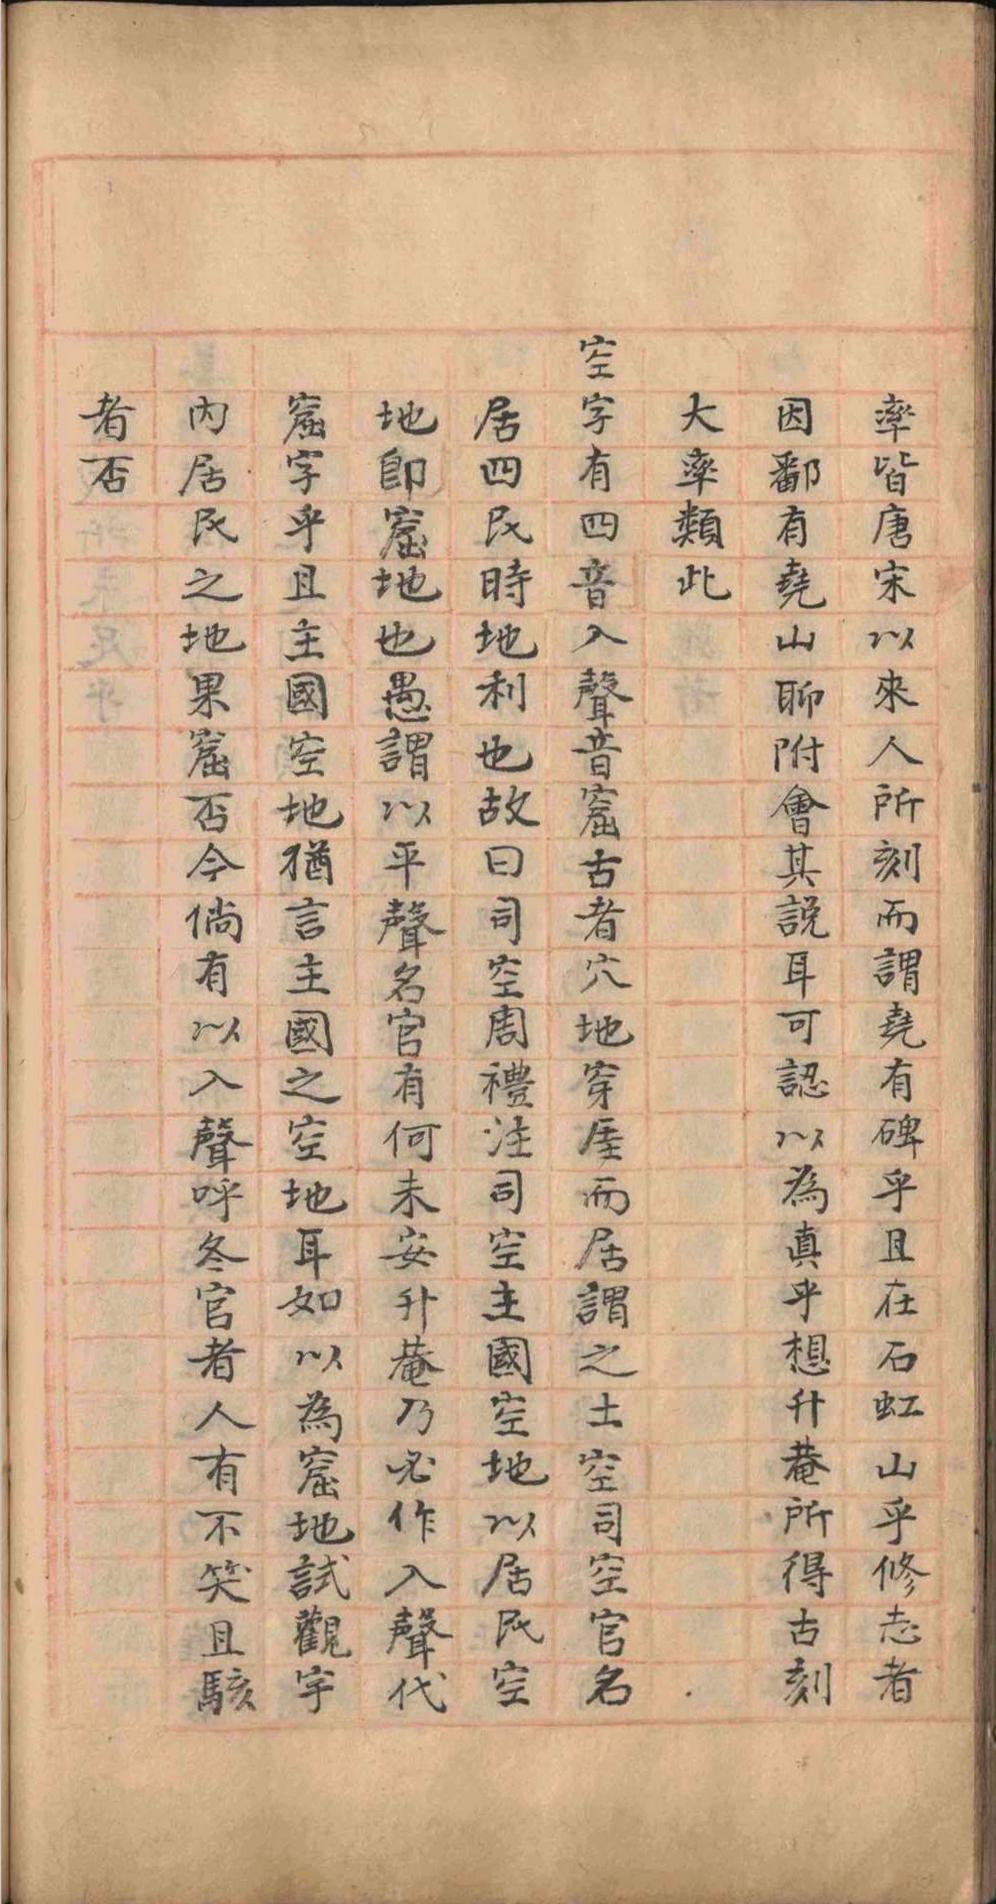 率皆唐宋以來人所刻而謂堯有碑乎且在石虹山乎修志者
因鄱有堯山聊附會其說耳可認以為真乎想升菴所得古刻
大率類此
空字有四音入聲音窟古者穴地穿厓而居謂之土空司空官名
居四民時地利也故曰司空周禮注司空主國空地以居民空
地即窟地也愚謂以平聲名官有何未安升菴乃必作入聲代
窟字乎且主國空地猶言主國之空地耳如以為窟地試觀宇
內居民之地果窟否今倘有以入聲呼冬官者人有不笑且駭
者否